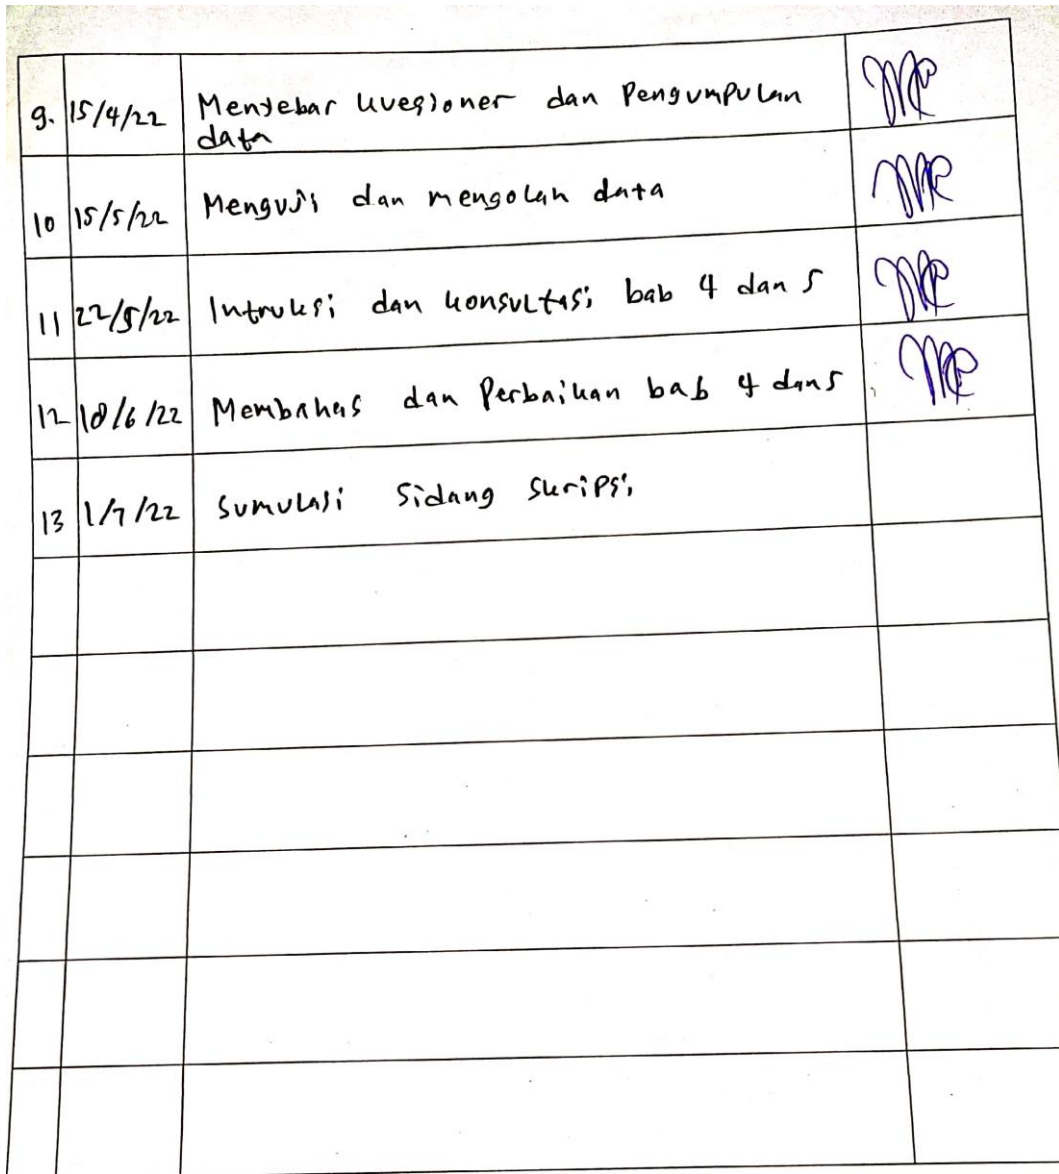 9. 15/4/22 Menyebar kuesioner dan Pengumpulan
data
10 15/5/22 Menguji dan mengolah data
11 22/5/22 Intruksi dan konsultasi bab 4 dan 5
12 18/6/22 Membahas dan Perbaikan bab 4 dan 5
13 1/7/22 Sumulasi Sidang Skripsi